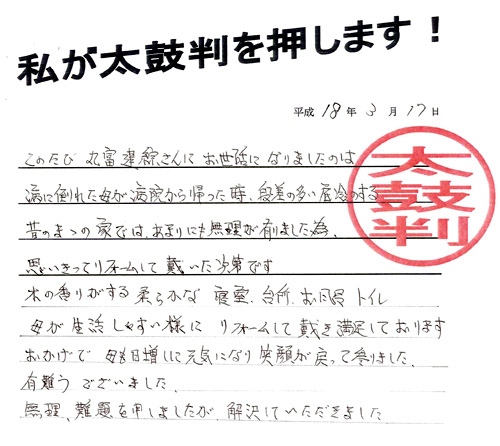 私が太鼓判を押します！
平成 18年 3月 17日
太鼓判
このたび 丸富建築さんに お世話に なりましたのは
病に倒れた母が病院から帰った時、段差の多い底冷のする
昔のまゝの家では、あまりにも無理が有りました為、
思いきってリフォームして戴いた次第です
木の香りがする 柔らかな 寝室、台所、お風呂 トイレ
母が生活しやすい様に リフォームして戴き満足しております
おかげで 母も日増しに元気になり笑顔が戻って参りました、
有難う ございました、
無理、難題を申しましたが、解決していただきました